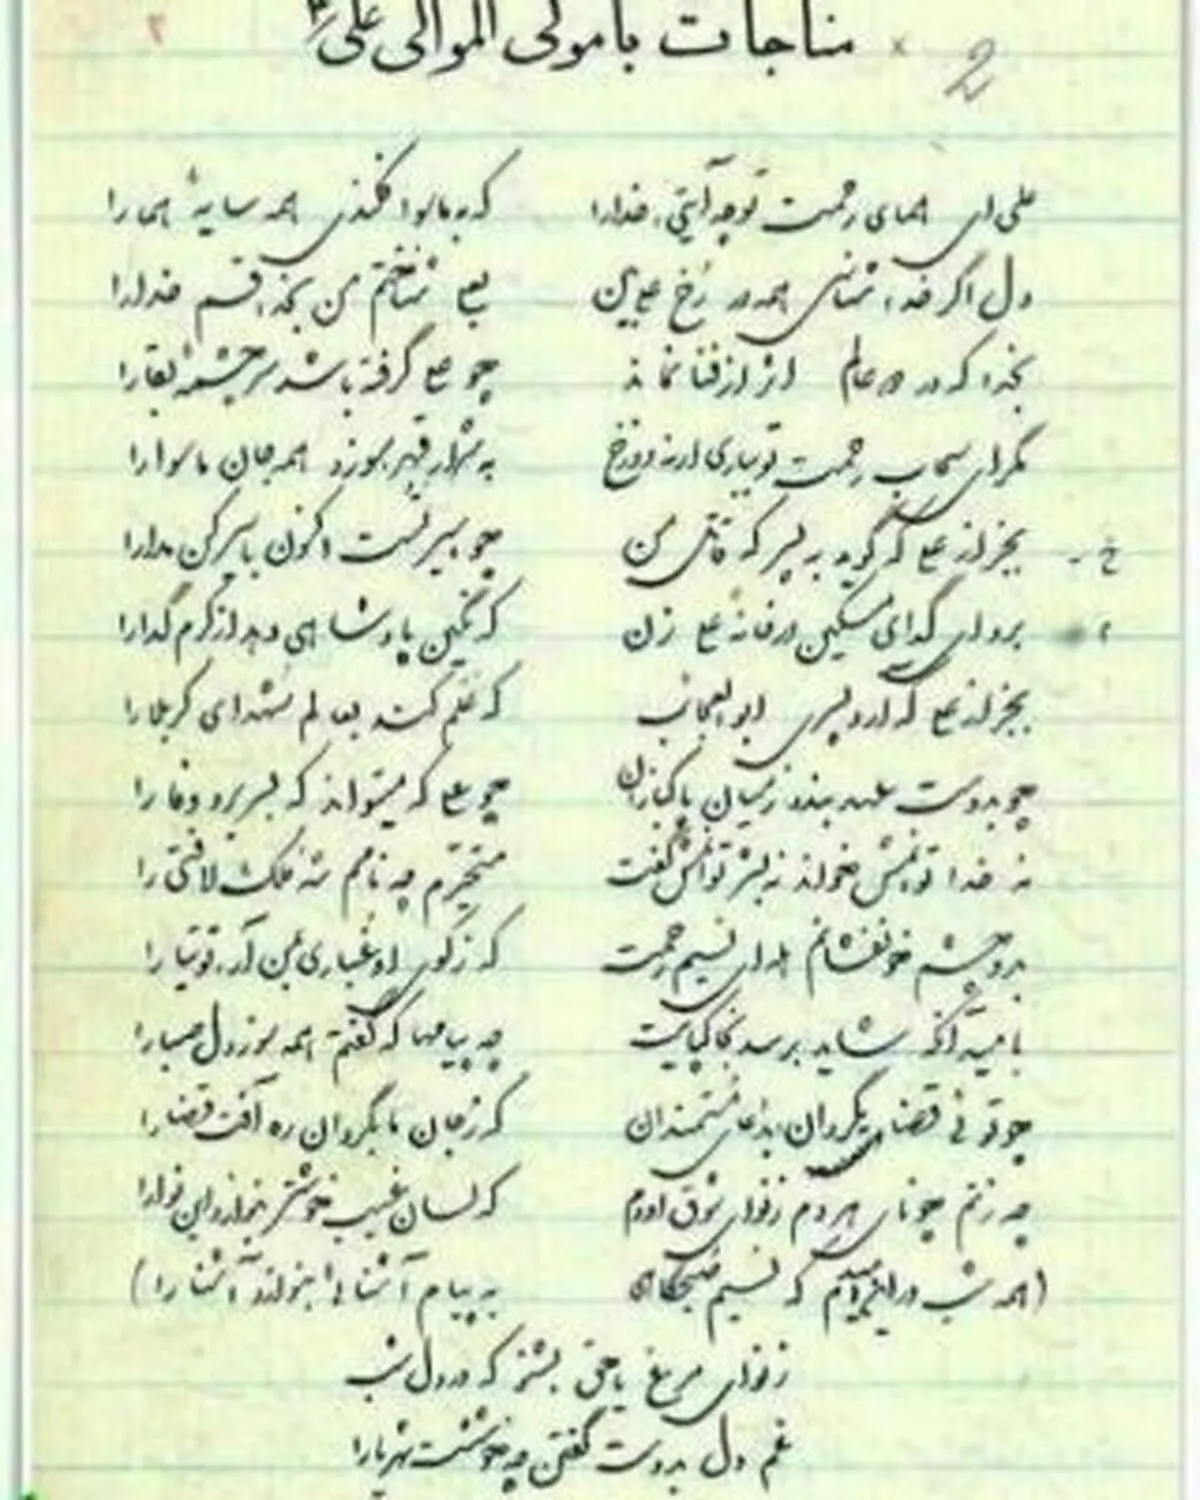 مناجات با مولی الموالی علی ع
علی ای همای رحمت تو چه آیتی خدا را که به ماسوا فکندی همه سایهٔ هما را
دل اگر خداشناسی همه در رخ علی بین به علی شناختم من بخدا قسم خدا را
بخدا که در دو عالم اثر از فنا نماند چو علی گرفته باشد سر چشمهٔ بقا را
مگر ای سحاب رحمت تو بباری ارنه دوزخ به شرار قهر بسوزد همه جان ماسوا را
بجز از علی که گوید به پسر که قاتل من چو اسیر تست اکنون با اسیر کن مدارا
برو ای گدای مسکین در خانهٔ علی زن که نگین پادشاهی دهد از کرم گدا را
بجز از علی که آرد پسری ابوالعجائب که علم کند بعالم شهدای کربلا را
چو بدوست عهد بندد ز میان پاکبازان چو علی که میتواند که بسر برد وفا را
نه خدا توانمش خواند نه بشر توانمش گفت متحیرم چه نامم شه ملک لافتی را
بدو چشم خونفشانم هله ای نسیم رحمت که ز کوی او غباری بمن آر توتیا را
بامید آنکه شاید برسد بخاکپایت چه پیامها که گفتم همه سوز دل صبا را
چو توئی قضا بگردان بدعای مستمندان که ز جان ما بگردان ره آفت قضا را
چه زنم چو نای هر دم ز نوای شوق او دم که لسان غیب خوشتر بنوازد این نوا را
(همه شب در این امیدم که نسیم صبحگاهی به پیام آشنائی بنوازد آشنا را)
ز نوای مرغ یا حق بشنو که در دل شب
غم دل بدوست گفتن چه خوشست شهریارا